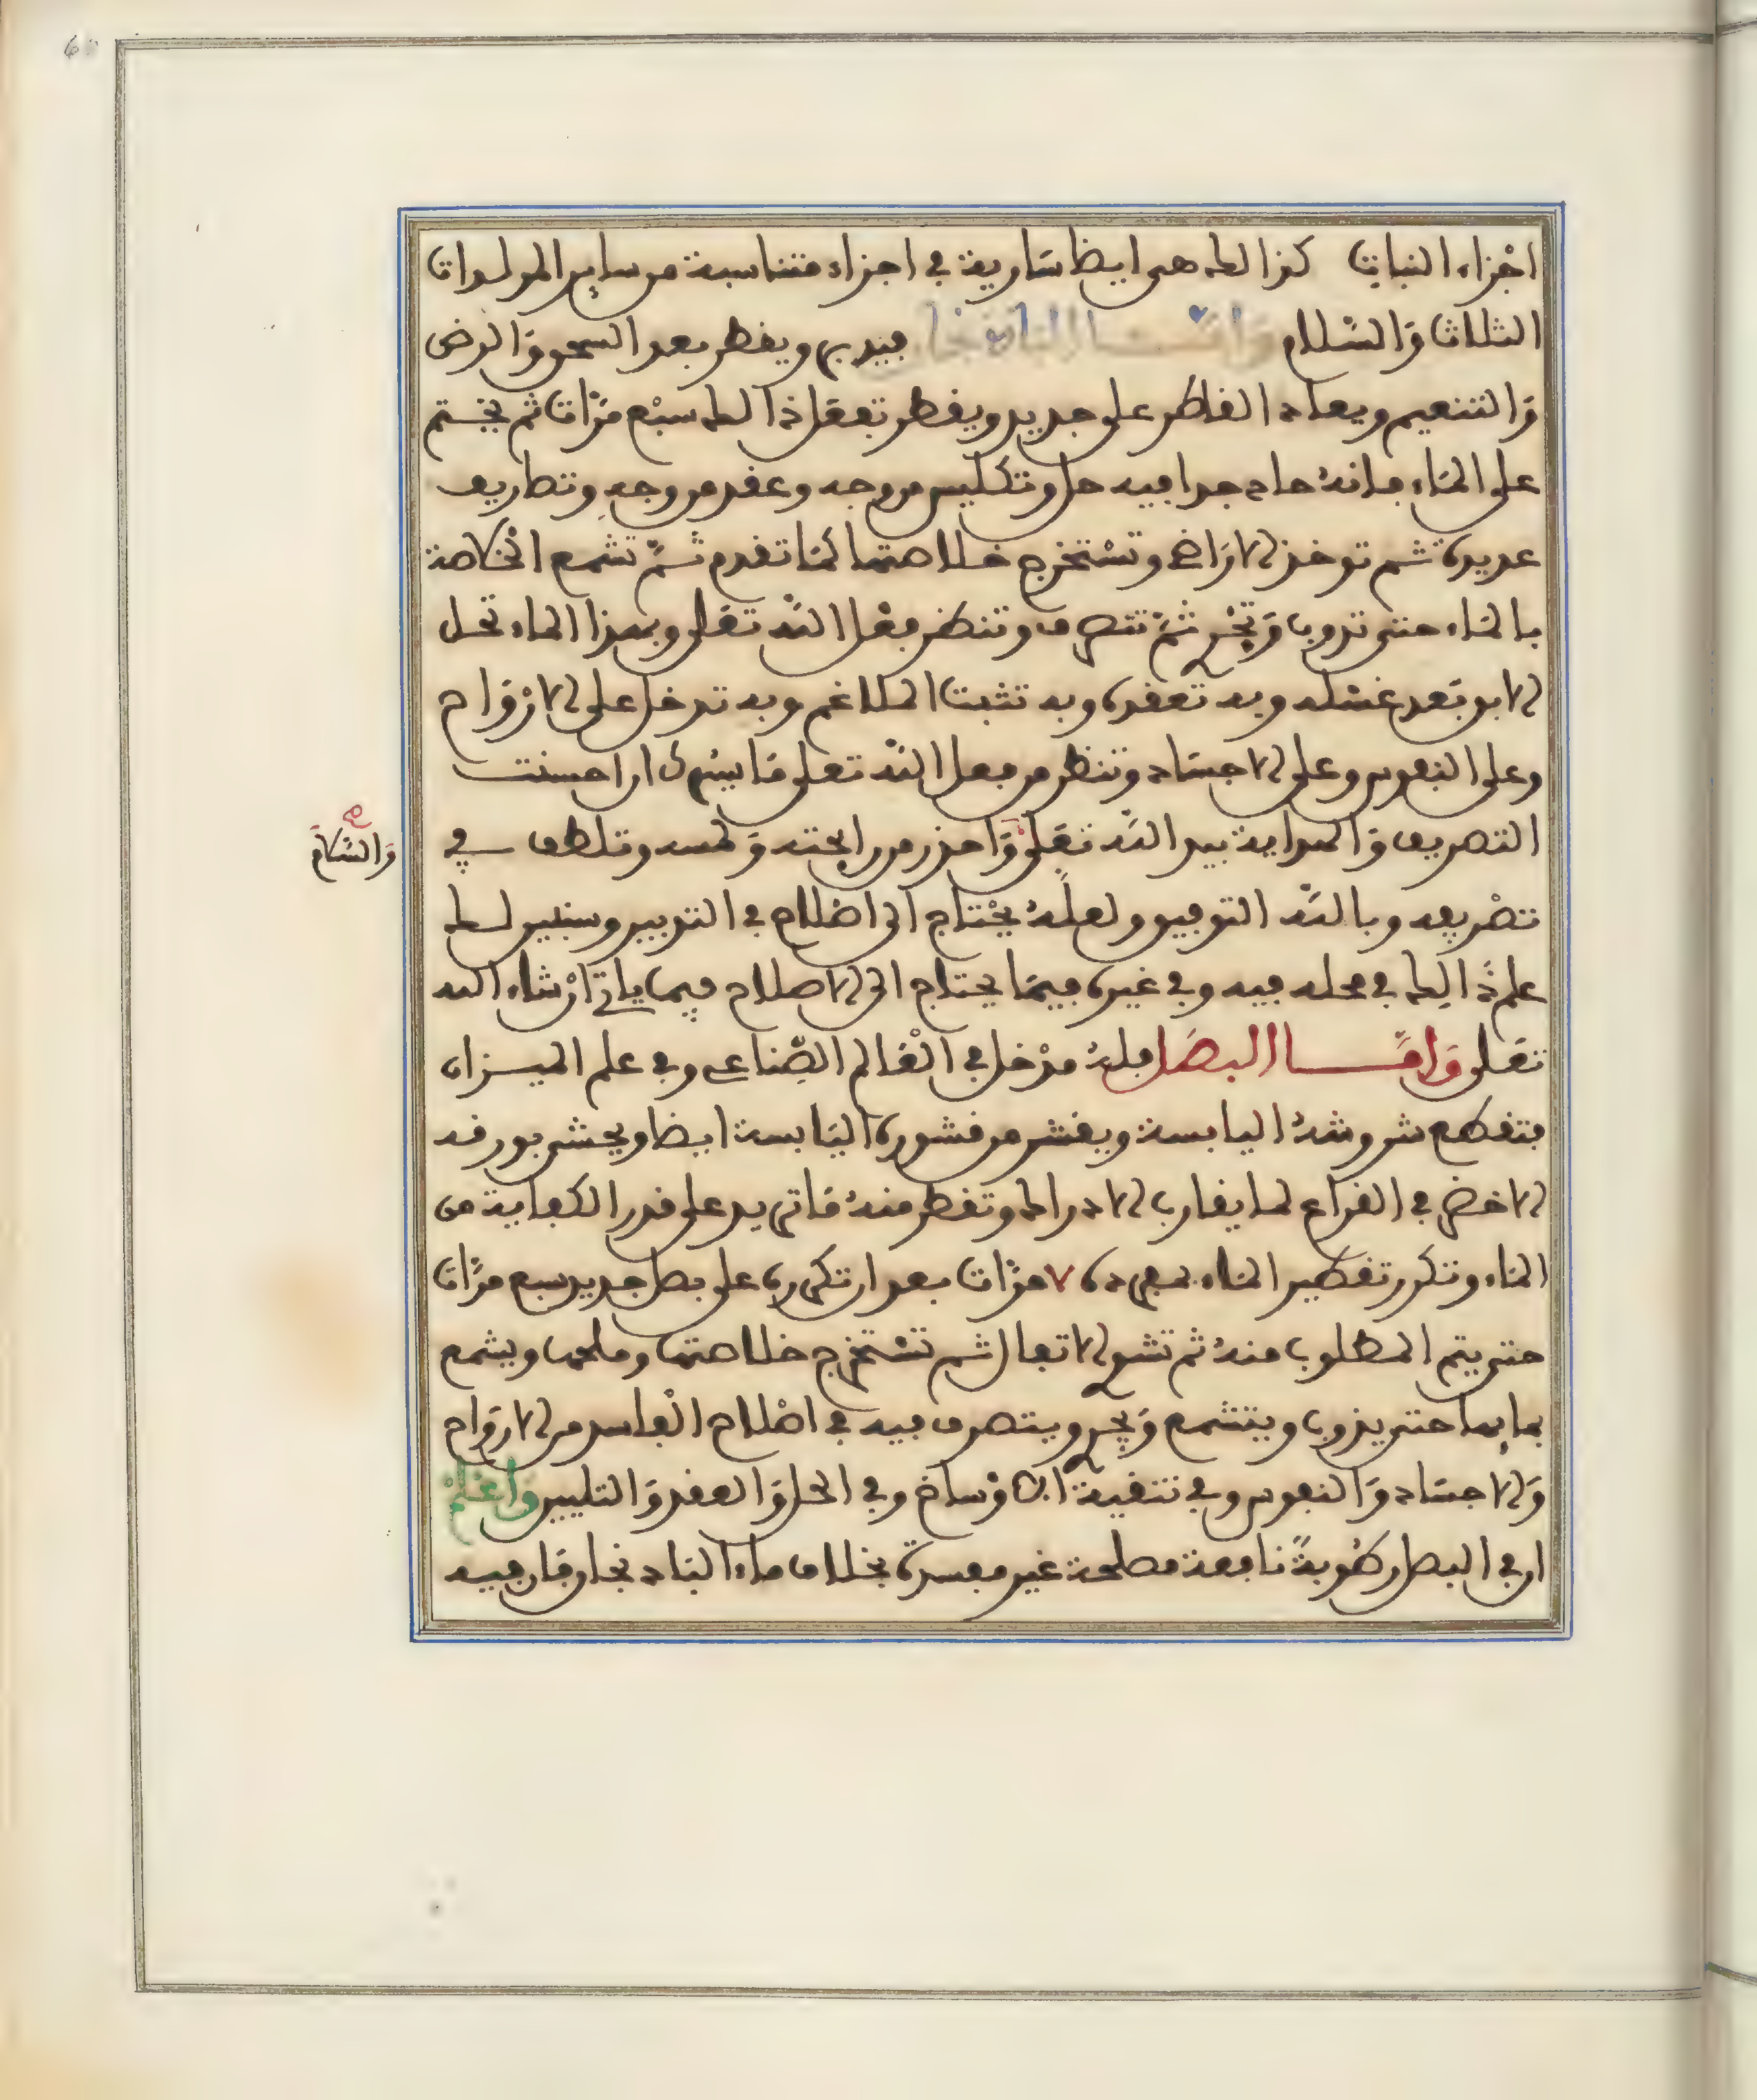 اجزاء النبات كذالك هي ايضا سارية في اجزاء متناسبة من ساير المولدات
الثلاث والسلام واما الباذنجان فيدبر ويقطر بعد السحق والرض
والتنعيم ويعاد القاطر على جديد ويقطر تفعل ذالك سبع مرات ثم يختم
على الماء فانه حاد جدا فيه حل وتكليس من وجه وعقد من وجه وتصاريف
عديدة ثم توخذ الاراضي وتستخرج خلاصتها كما تقدم ثم تشمع الخلاصة
بالماء حتى تذوب وتجري ثم تتصرف وتنظر فعل الله تعلى وبهذا الماء تحل
الابق بعد غسله وبه تعقده وبه تثبت الملاغم وبه تدخل على الارواح
وعلى النفوس وعلى الاجساد وتنظر من فعل الله تعلى ما يسرك ان احسنت
التصريف والهداية بيد الله تعلى واحذر من رايحته ولمسه وتلطف في
تصريفه وبالله التوفيق ولعله يحتاج الى اصلاح في التدبير وسنبين لك
علم ذالك في محله فيه وفي غيره فيما يحتاج الى الاصلاح فيما ياتي ان شاء الله
والسلام صح
تعلى واما البصل فله مدخل في العالم الصناعي وفي علم الميزان
فتقطع شروشه اليابسة ويقشر من قشوره اليابسة ايضا ويحشى بورقه
الاخضر في القراع لما يقارب الادراك وتقطر منه ما تريد على قدر الكفاية من
الماء وتكرر تقطير الماء لمفرده ٧ مرات بعد ان تكرره على بصل جديد سبع مرات
حتى يتم المطلوب منه ثم تشوي الاتفال ثم تستخرج خلاصتها وملحها ويشمع
بمايها حتى يذوب ويتشمع ويجري ويتصرف فيه في اصلاح الفاسد من الارواح
والاجساد والنفوس وفي تنقية الاوساخ وفي الحل والعقد والتليين واعلم
ان في البصل رطوبة نافعة مصلحة غير مفسدة بخلاف ماء الباذنجان فان فيه